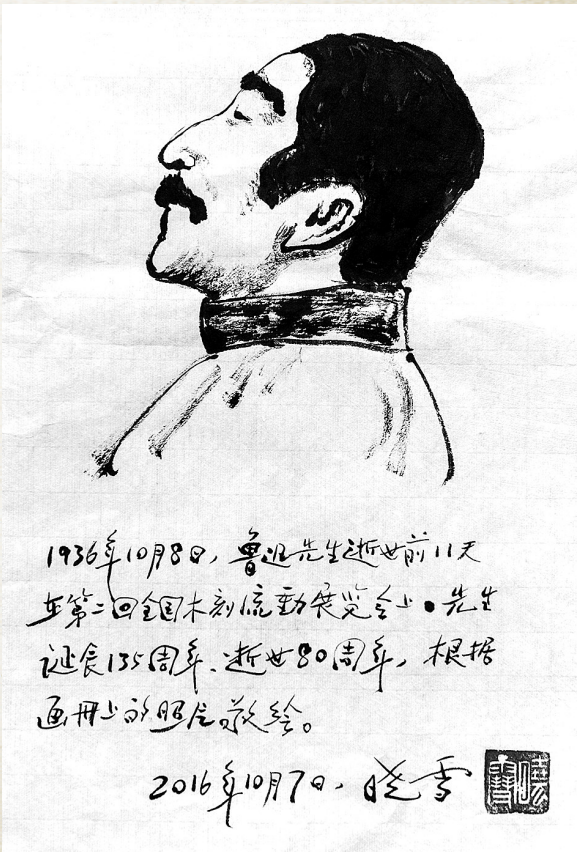 1936年10月8日,鲁迅先生逝世前11天
在第二回全国木刻流动展览会上。先生
诞辰135周年、逝世80周年,根据
画册上的照片敬绘。
2016年10月7日,晓雪
晓雪